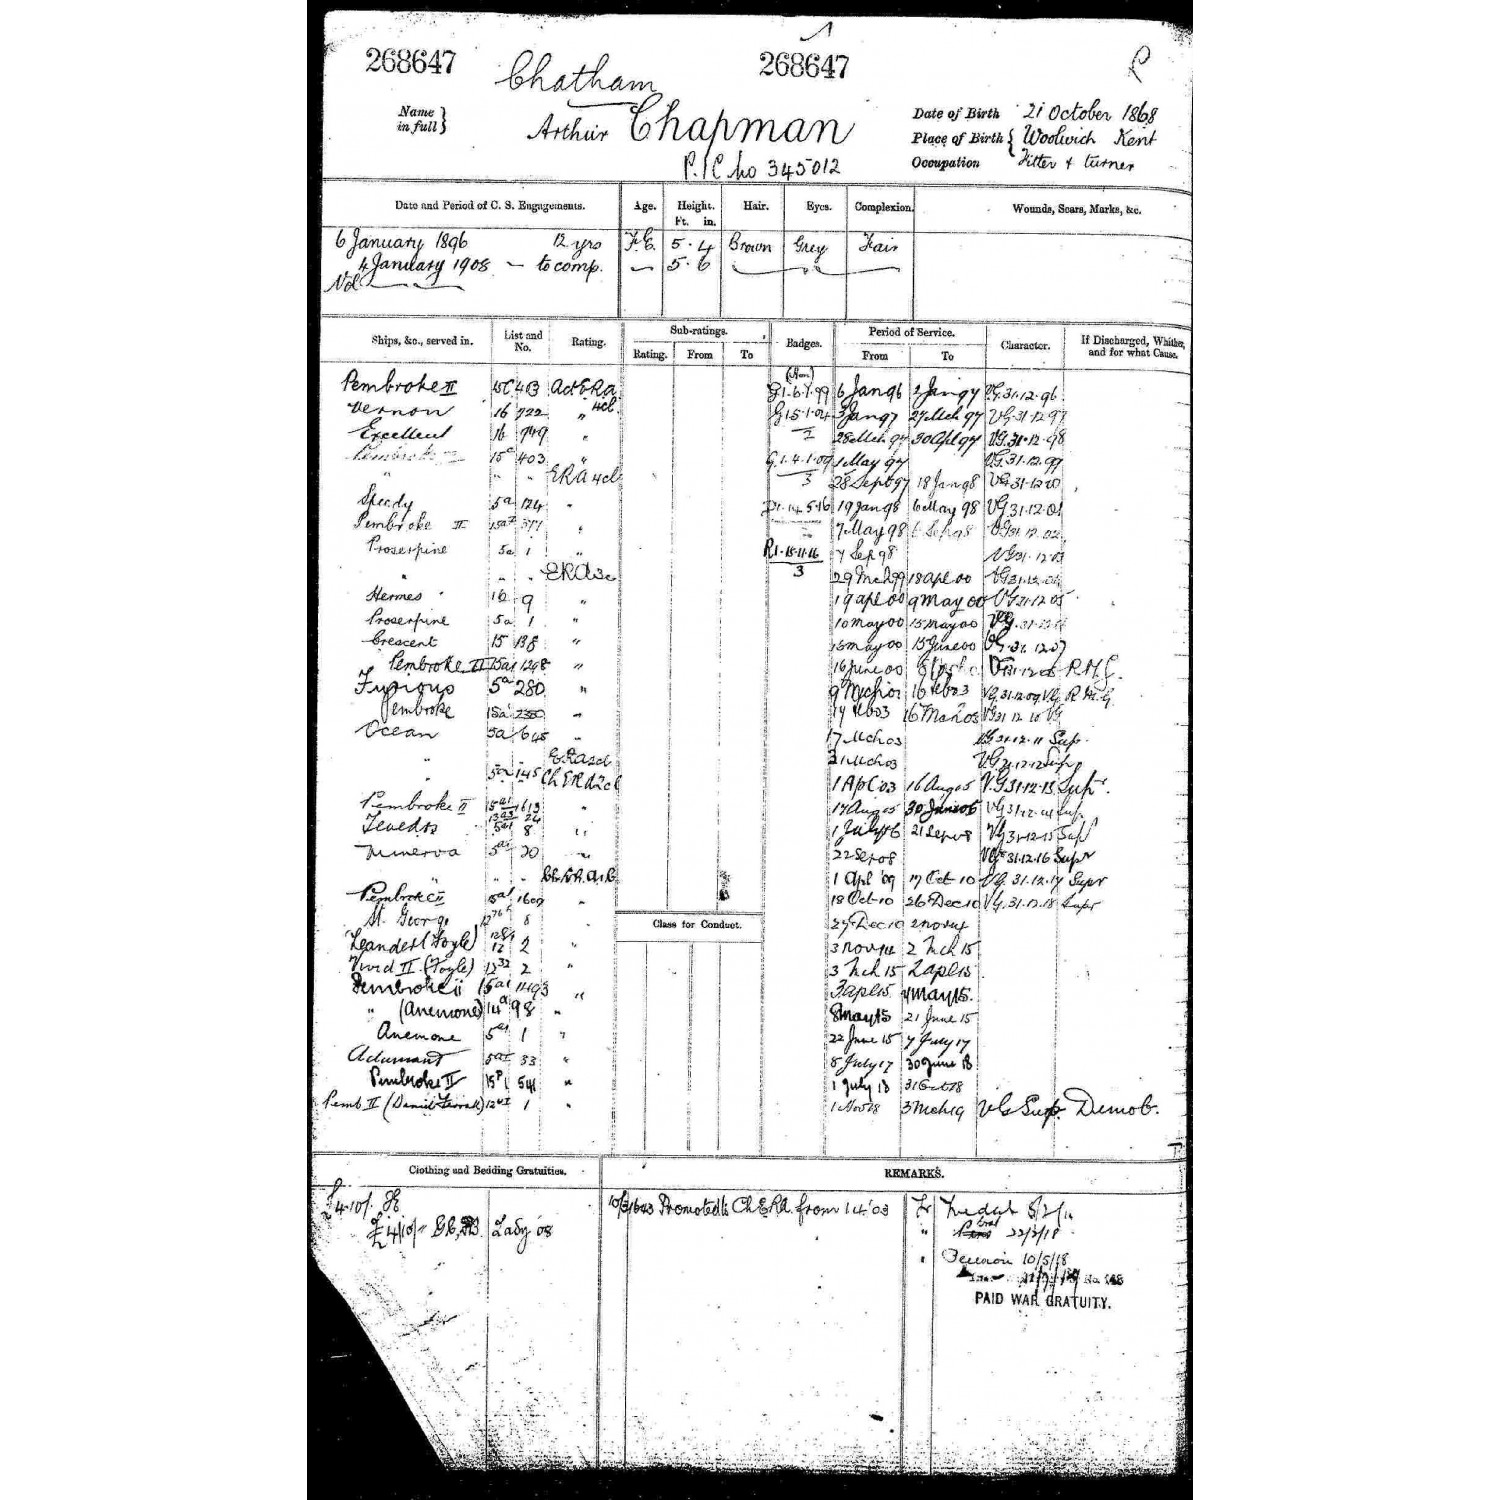 268647 Chatham 268647 R
Name in full } Arthur Chapman
Date of Birth 21 October 1868
Place of Birth { Woolwich Kent
Occupation Fitter & turner
345012
Date and Period of C. S. Engagements. Age. Height. Ft. in. Hair. Eyes. Complexion. Wounds, Scars, Marks, &c.
6 January 1896 12 yrs 5·4 Brown Grey Fair
4 January 1908 — to comp. 5·6
Ships, &c., served in. List and No. Rating. Sub-ratings. Rating. From To Badges. Period of Service. From To Character. If Discharged, Whither, and for what Cause.
Pembroke II 15C 403 Act ERA 4cl G1·6·1·99 6 Jan 96 2 Jan 97 VG 31·12·96
Vernon 16 722 " 3 Jan 97 27 Mch 97 VG 31·12·97
Excellent 16 749 " 28 Mch 97 30 Apl 97 VG 31·12·98
403 " G1·4·1·09 1 May 97 VG 31·12·99
" " " ERA 4cl 3 28 Sept 97 18 Jan 98 VG 31·12·00
Speedy 5a 124 " 19 Jan 98 6 May 98 VG 31·12·01
Pembroke II 15a2 377 7 May 98 6 Sep 98 VG 31·12·02
Proserpine 5a 1 " R1-15-11-16 7 Sep 98 VG 31·12·03
" " " ERA 3c 3 29 Mch 99 18 Apl 00 VG 31·12·04
Hermes 16 9 " 19 Apl 00 9 May 00 VG 31·12·05
Proserpine 5a 1 " 10 May 00 15 May 00 VG
Crescent 15 138 " 16 May 00 15 June 00 VG 31·12·07
Pembroke II 15a1 1298 " 16 June 00 VG 31·12·08 R.M.G.
Furious 5a 280 " 16 Feb 03 VG 31·12·09 VG R.M.G
Pembroke 15a 2380 " 17 Feb 03 16 Mar 03 VG 31 12 10 VG
Ocean 5a 645 " 17 Mch 03 VG 31·12·11 Sup
" 21 Mch 03 VG 31·12·12 Sup
" 5a 145 Ch ERA 2cl 1 Apl 03 16 Aug 05 VG 31·12·13 Supr.
Pembroke II 15a1 1613 " 17 Aug 05 30 June 06 VG 31·12·14 Sup
Tenedos 5a1 8 " 1 July 06 21 Sep 08 VG 31·12·15 Supr
Minerva 5a1 20 " 22 Sep 08 VG 31·12·16 Supr
" " Ch.E.R.A.1.C. 1 Apl 09 17 Oct 10 VG 31·12·17 Supr
Pembroke II 15a1 1609 " 18 Oct 10 26 Dec 10 VG 31·12·18 Supr
St. George 8 27 Dec 10 2 Nov 14
Class for Conduct.
Leander (Foyle) 12 2 " 3 Nov 14 2 Mch 15
Vivid II (Foyle) 2 " 3 Mch 15 2 Apl 15
Pembroke ii 15a1 11493 " 3 Apl 15 7 May 15.
" (Anemone) 14a 98 " 8 May 15 21 June 15
Anemone 5a1 1 " 22 June 15 7 July 17
Adamant 5a1 33 " 8 July 17 30 June 18
Pembroke II 15P1 541 " 1 July 18 31 Oct 18
Pemb II (Daniel Fearall) 1 " 1 Nov 18 3 Mch 19 VG Sup. Demob.
Clothing and Bedding Gratuities. REMARKS.
£4·10/· Promoted to Ch ERA from 1 4 '03
£4/10/· Lady 08
22/2/18
10/5/18
PAID WAR GRATUITY.